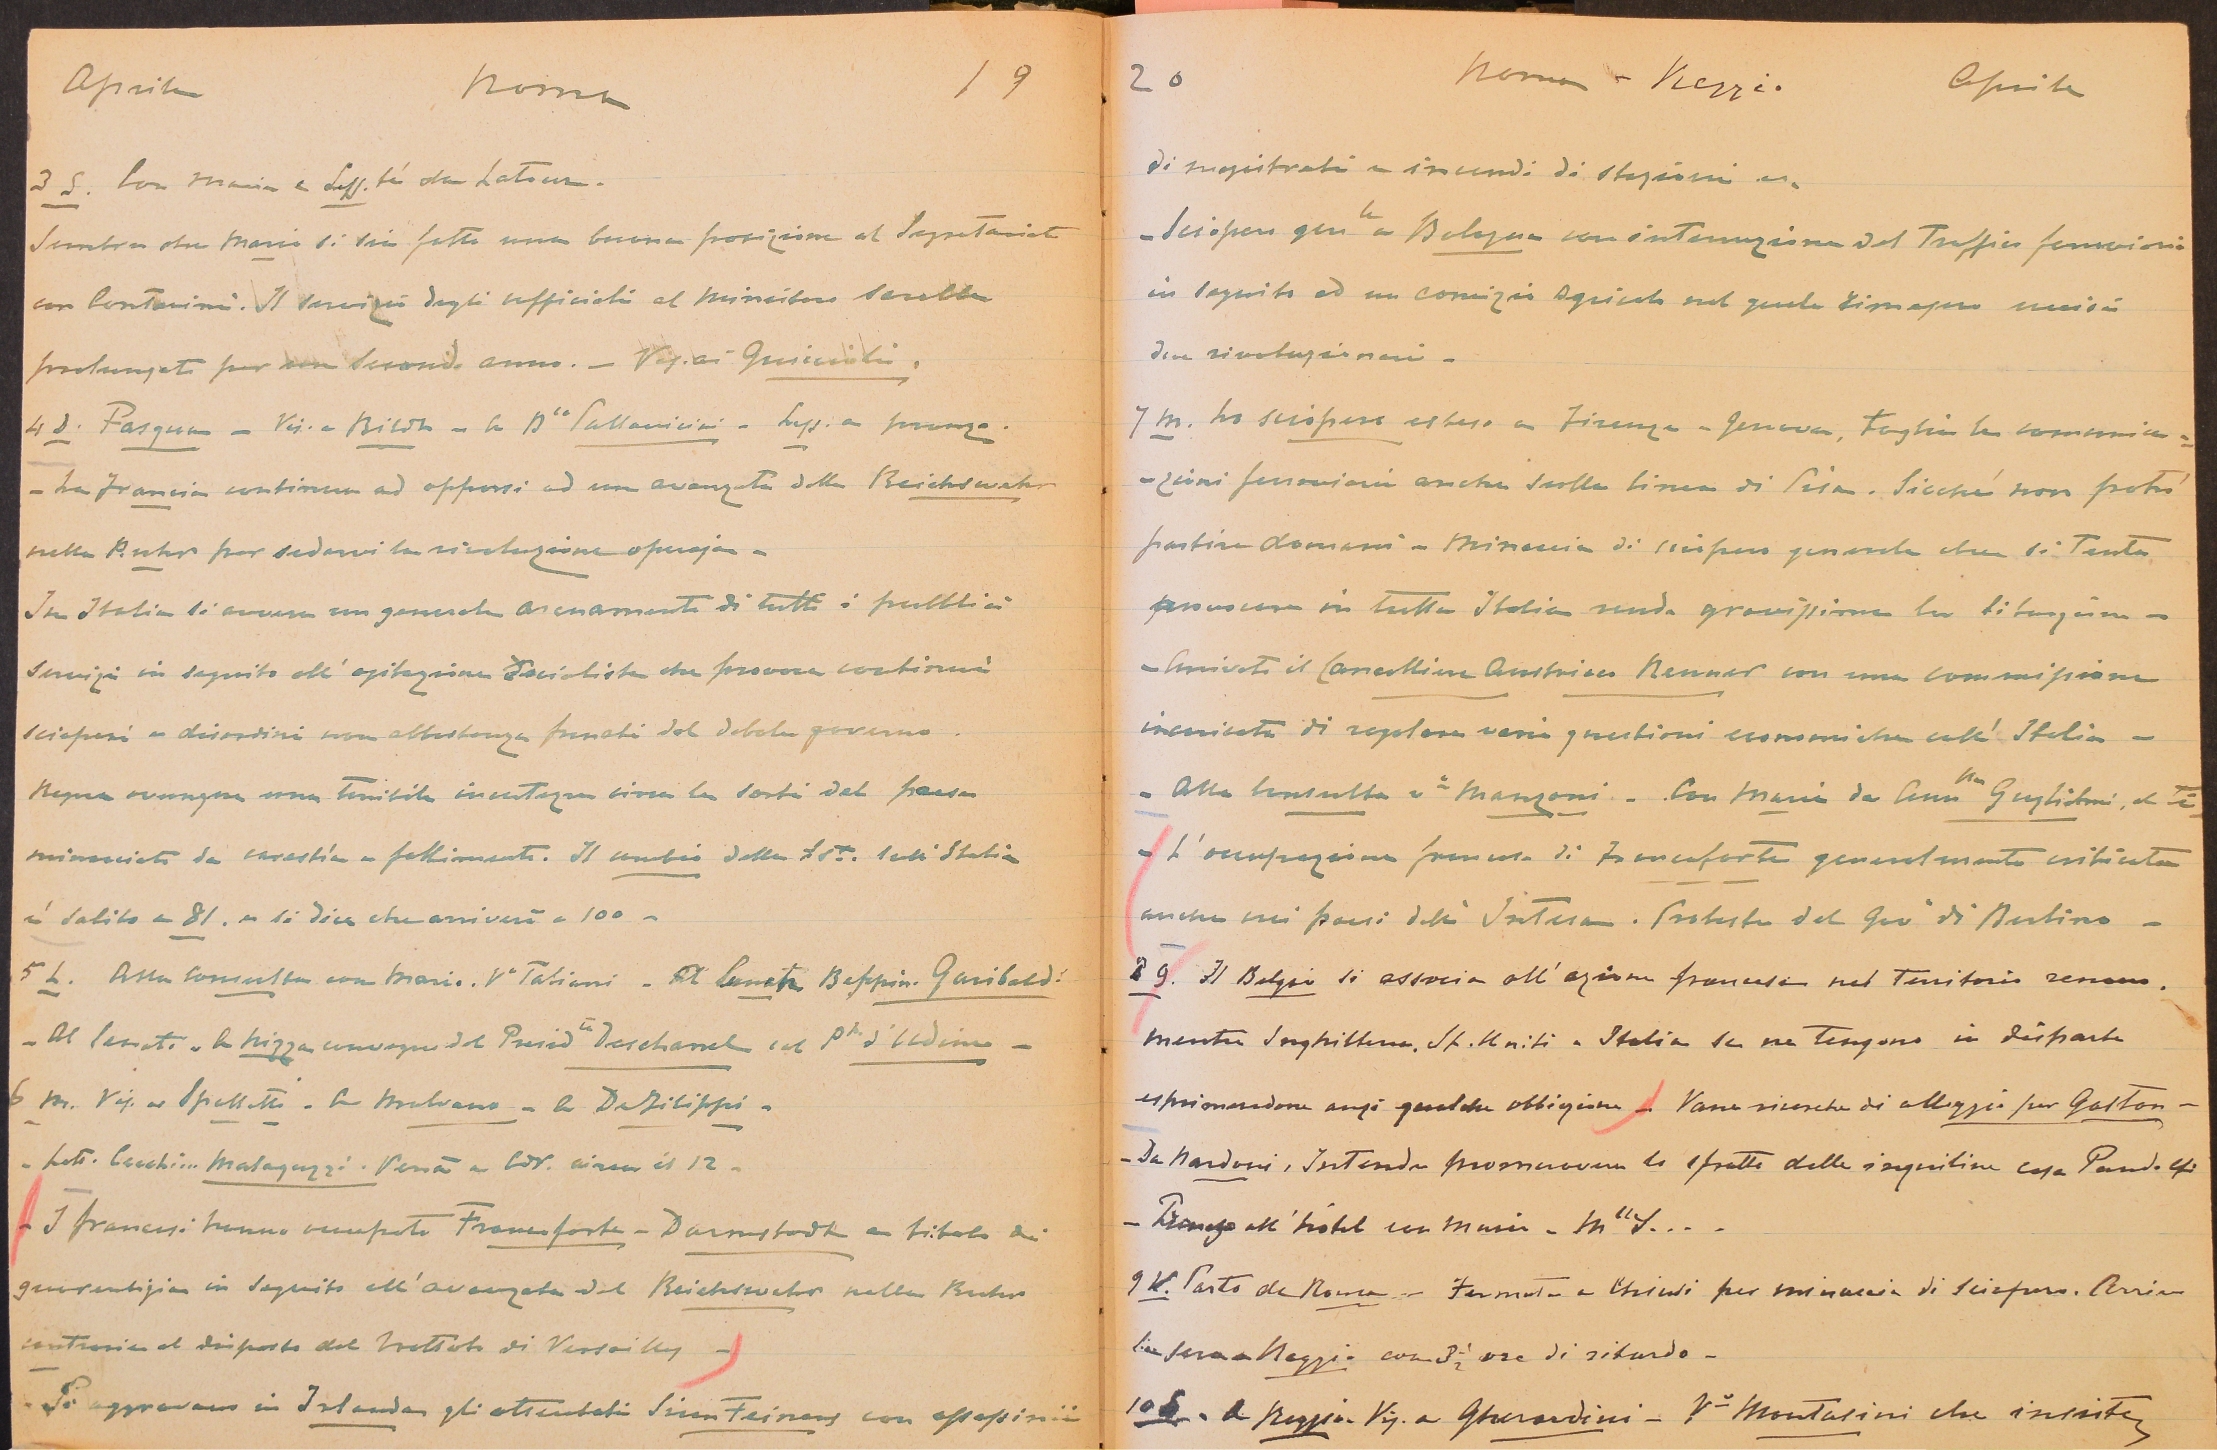 Aprile Roma 19
3 S. Con Maria a Legg. té da Latour.
Sembra che Mario si sia fatta una buona posizione al Segretariat
con Contarini. Il servizio degli ufficiali al Ministero sarebbe
prolungato per un secondo anno. - Vis. ai Guiccioli.
4 D. Pasqua - Vis. a Bildt - a Dssa Pallavicini - Legg. a pranzo.
- La Francia continua ad opporsi ad una avanzata della Reichswehr
nella Ruhr per sedarvi la rivoluzione operaja -
In Italia si avvera un generale arenamento di tutti i pubblici
servizi in seguito all'agitazione socialista che provoca continui
scioperi e disordini non abbastanza frenati dal debole governo.
Regna ovunque una terribile incertezza circa la sorte del paese
minacciato da carestia e fallimento. Il cambio della Lst. coll'Italia
é salito a 81. e si dice che arriverà a 100 -
5 L. Alla Consulta con Mario. Vo Taliani - Al Senato Beppino Garibaldi
- Al Senato - A Nizza convegno del Presidte Deschanel col Pe d'Udine -
6 M. Vis. a Spalletti - a Malvano - a De Filippi -
- Lett. Cecchi... Malaguzzi. Verrà a CdV. circa il 12 -
- I francesi hanno occupato Francoforte - Darmstadt a titolo di
guarentigia in seguito all'avanzata del Reichswehr nella Ruhr
contraria al disposto del trattato di Versailles -
- Si aggravano in Irlanda gli attentati Sinn Feiners con assassinii
20 Roma - Reggio Aprile
di magistrati e incendi di stazioni ec.
- Sciopero genle a Bologna con interruzione del traffico ferroviario
in seguito ad un comizio agricolo nel quale rimasero uccisi
due rivoluzionari -
7 M. Lo sciopero esteso a Firenze - Genova, taglia le comunica=
-zioni ferroviarie anche sulla linea di Pisa. Sicché non potrò
partire domani - Minaccia di sciopero generale che si tenta
provocare in tutta Italia rende gravissima la situazione -
- Arrivato il Cancelliere Austriaco Renner con una commissione
incaricata di regolare varie questioni economiche coll'Italia -
- Alla Consulta vo Manzoni - Con Maria da Guglielmi, al té
- L'occupazione francese di Francoforte generalmente criticata
anche nei paesi dell'Intesa. Protesta del Govo di Berlino -
8 G. Il Belgio si associa all'azione francese nel territorio renano.
mentre Inghilterra, St. Uniti e Italia se ne tengono in disparte
esprimendone anzi qualche obbiezione -. Vane ricerche di alloggio per Gaston -
- Da Nardoni, Intende promuovere lo sfratto delle inquiline casa Pandolfi
- Pranzo all'hôtel con Maria - Mlle S... -
9 V. Parto da Roma - Fermata a Chiusi per minaccia di sciopero. Arrivo
la sera a Reggio con 3 1/2 ore di ritardo -
10 S. - A Reggio. Vis. a Gherardini - Vo Montasini che insiste